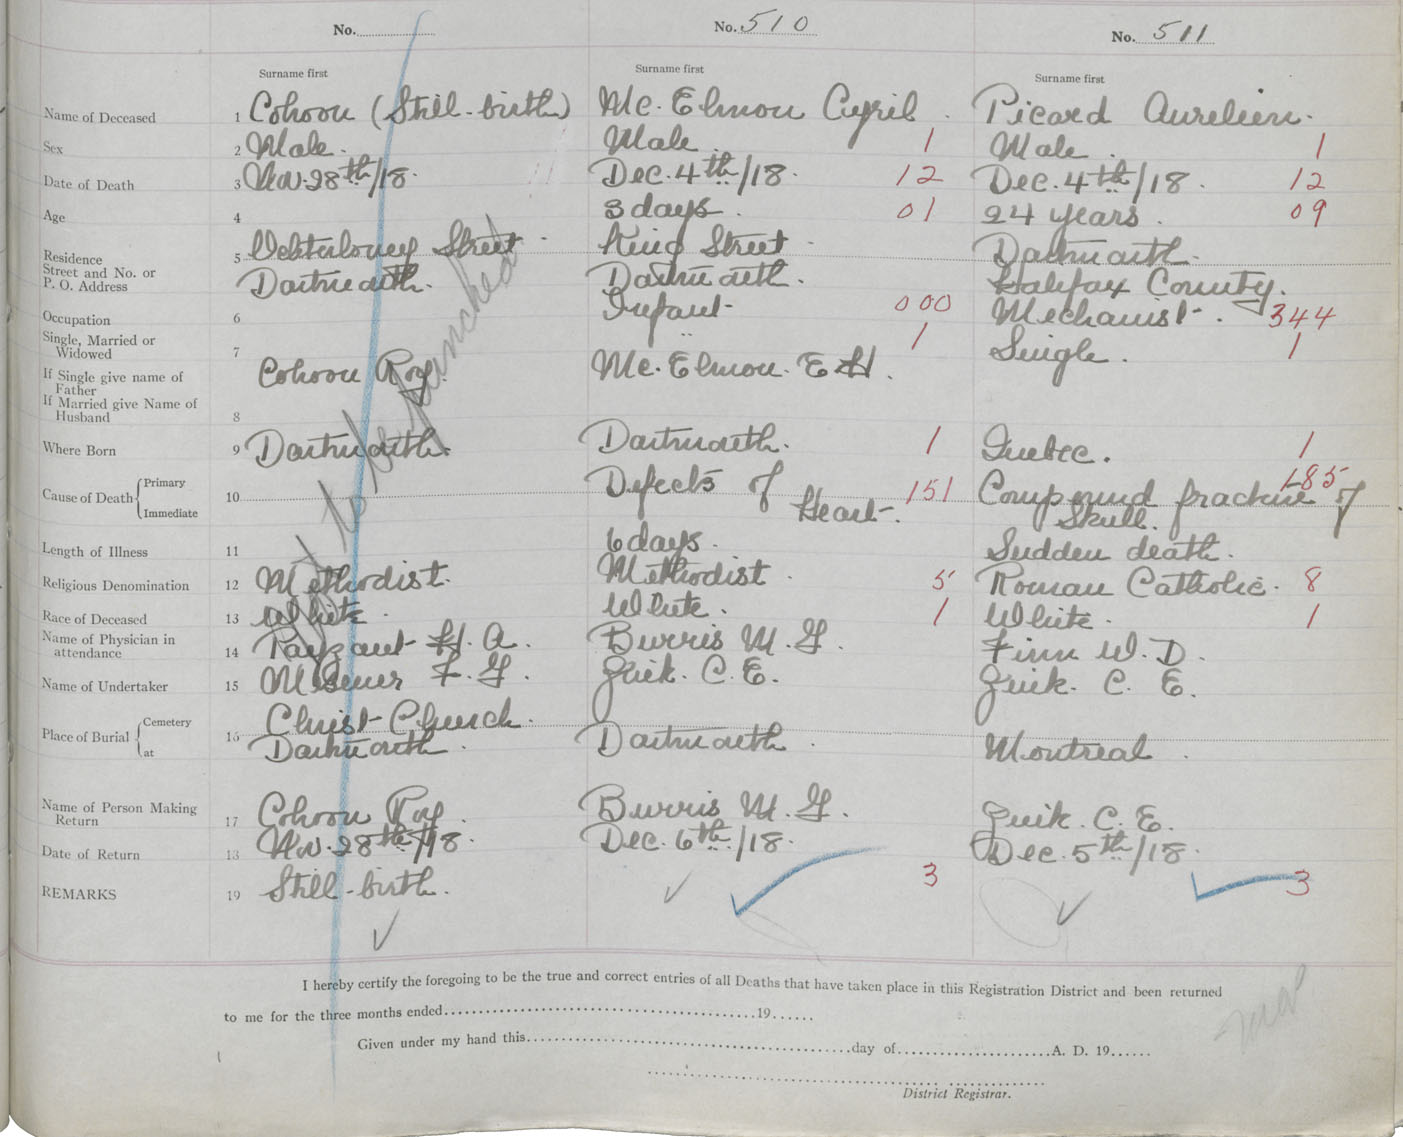 No. No. 510 No. 511
Surname first Surname first Surname first
Name of Deceased 1 Cohoon (Still-birth) Mc. Elmon Cyril. Picard Aurelien.
Sex 2 Male. Male. 1 Male. 1
Date of Death 3 Nov. 28th/18. Dec. 4th/18. 12 Dec. 4th/18. 12
Age 4 3 days. 01 24 years. 09
Residence 5 Street King Street Dartmouth.
Street and No. or
P. O. Address Dartmouth. Dartmouth. Halifax County.
Occupation 6 Infant 000 Mechanist. 344
Single, Married or
Widowed 7 1 Single. 1
If Single give name of
Father Cohoon Roy. Mc. Elmon. E. H.
If Married give Name of
Husband 8
Where Born 9 Dartmouth. Dartmouth. 1 Quebec. 1
Cause of Death Primary 10 Defects of 151 Compound fracture of 185
Immediate Heart. Skull.
Length of Illness 11 6 days. Sudden death.
Religious Denomination 12 Methodist. Methodist. 5 Roman Catholic. 8
Race of Deceased 13 White. White. 1 White. 1
Name of Physician in
attendance 14 Payzant H. A. Burris M. G. Finn W. D.
Name of Undertaker 15 Misener F. G. Zink. C. E. Zink. C. E.
Place of Burial Cemetery 16 Christ Church.
at Dartmouth. Dartmouth. Montreal.
Name of Person Making
Return 17 Cohoon Roy. Burris M. G. Zink. C. E.
Date of Return 18 Nov. 28th/18. Dec. 6th/18. Dec. 5th/18.
REMARKS 19 Still-birth. 3 3
not to be punched
I hereby certify the foregoing to be the true and correct entries of all Deaths that have taken place in this Registration District and been returned
to me for the three months ended 19
Given under my hand this day of A. D. 19
District Registrar.